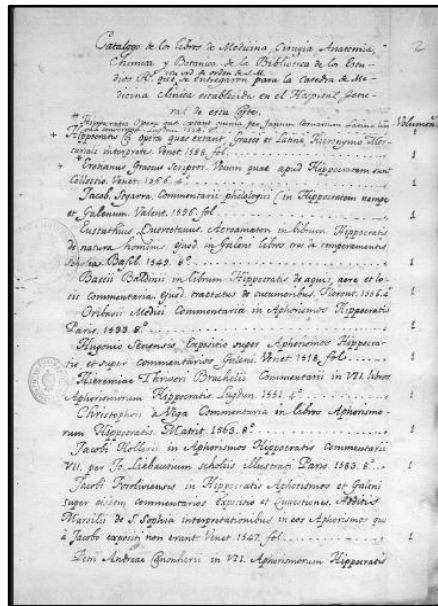 2
Catalogo de los libros de Medicina, Cirugia, Anatomia,
Chimica y Botanica, de la Biblioteca de los Estu-
dios R.s que en vrd de orden de S.M.
se entregaron para la Catedra de Me-
dicina Clinica establecida en el Hospital Gene-
ral de esta Corte.
Volumen.s
Hippocratis Opera que extant omnia per Janum Cornarium Latina
Lugdun. 8.º
1
Hippocratis Opera quae extant Graece et Latine, Hieronymo Mer-
curiali interprete. Venet. 1588. fol.
1
Erotianus, Graecus Scriptor. Vocum quae apud Hippocratem sunt
Collectio. Venet. 1566. 4.º
1
Jacob. Segarra. Commentarii philologici in Hippocratem nempe
et Galenum. Valent. 1596. fol.
1
Eustathius Quercetanus. Acroamaton in librum Hippocratis
de natura hominis. Ejusd. in Galeni libros tres de temperamentis
scholia. Basil. 1549. 8.º
1
Baccii Baldinii in librum Hippocratis de aquis, aere et lo-
cis commentaria. Ejusd. tractatus de cucumeribus. Florent. 1586. 4.º
1
Oribasii Medici Commentaria in Aphorismos Hippocratis
Paris. 1533. 8.º
1
Hugonis Senensis Expositio super Aphorismos Hippocra-
tis, et super commentarios Galeni. Venet. 1518. fol.
1
Hieremiae Thriveri Brachelii Commentarii in VII. libros
Aphorismorum Hippocratis. Lugdun. 1551. 4.º
1
Christophori à Vega Commentaria in libros Aphorismo-
rum Hippocratis. Matrit. 1563. 8.º
1
Jacobi Hollerii in Aphorismos Hippocratis Commentarii
VII. per Jo. Liebautium scholiis illustrati. Paris. 1583. 8.º
1
Jacobi Foroliviensis in Hippocratis Aphorismos et Galeni
super eisdem commentarios Expositio et Quaestiones. Additis
Marsilii de S. Sophia interpretationibus in eos Aphorismos qui
à Jacobo expositi non erant. Venet. 1547. fol.
1
Petri Andreae Canonherii in VII. Aphorismorum Hippocratis